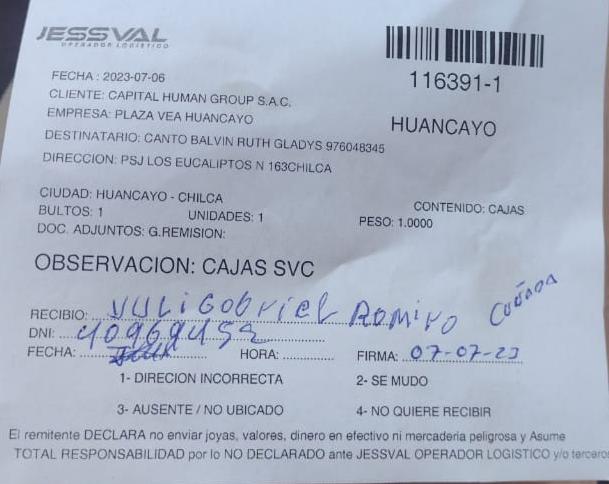 JESSVAL
OPERADOR LOGISTICO
116391-1
FECHA : 2023-07-06
CLIENTE: CAPITAL HUMAN GROUP S.A.C.
EMPRESA: PLAZA VEA HUANCAYO
HUANCAYO
DESTINATARIO: CANTO BALVIN RUTH GLADYS 976048345
DIRECCION: PSJ LOS EUCALIPTOS N 163CHILCA
CIUDAD: HUANCAYO - CHILCA
CONTENIDO: CAJAS
BULTOS: 1 UNIDADES: 1 PESO: 1.0000
DOC. ADJUNTOS: G.REMISION:
OBSERVACION: CAJAS SVC
RECIBIO: YULi GABRiEL RAMiRO CUÑADA
DNI: 40969452
FECHA: HORA: FIRMA: 07-07-23
1- DIRECION INCORRECTA 2- SE MUDO
3- AUSENTE / NO UBICADO 4- NO QUIERE RECIBIR
El remitente DECLARA no enviar joyas, valores, dinero en efectivo ni mercaderia peligrosa y Asume
TOTAL RESPONSABILIDAD por lo NO DECLARADO ante JESSVAL OPERADOR LOGISTICO y/o terceros